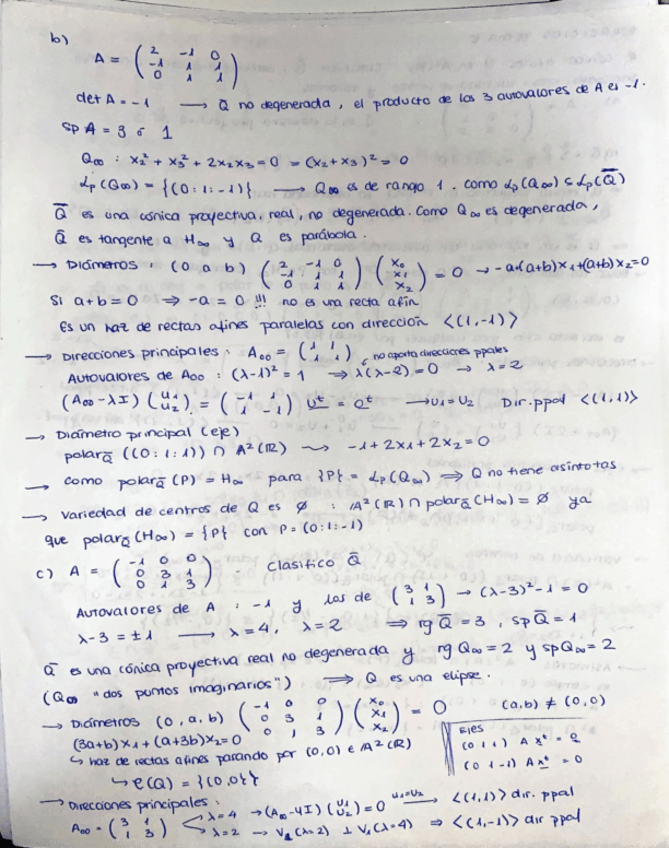 b)
A = ( 2 -1 0 ; -1 1 1 ; 0 1 1 )
det A = -1 ⟶ Q no degenerada, el producto de los 3 autovalores de A es -1.
sp A = 3 ó 1
Q∞ : x₂² + x₃² + 2x₂x₃ = 0 = (x₂+x₃)² = 0
𝓛p(Q∞) = {(0:1:-1)} ⟶ Q∞ es de rango 1. Como 𝓛p(Q∞) ⊂ 𝓛p(Q̅)
Q̅ es una cónica proyectiva, real, no degenerada. Como Q∞ es degenerada,
Q̅ es tangente a H∞ y Q es parábola.
→ Diámetros : (0 a b) ( 2 -1 0 ; -1 1 1 ; 0 1 1 ) ( x₀ ; x₁ ; x₂ ) = 0 → -a+(a+b)x₁+(a+b)x₂=0
Si a+b=0 ⇒ -a=0 !!! no es una recta afín
Es un haz de rectas afines paralelas con dirección <(1,-1)>
→ Direcciones principales : A₀₀ = ( 1 1 ; 1 1 ) no aporta direcciones ppales
Autovalores de A₀₀ : (λ-1)² = 1 ⇒ λ(λ-2) = 0 → λ = 2
(A₀₀ - λI) ( u₁ ; u₂ ) = ( -1 1 ; 1 -1 ) uᵗ = 0ᵗ ⟶ u₁ = u₂ Dir. ppal <(1,1)>
→ Diámetro principal (eje)
polar Q̅ ((0:1:1)) ∩ A²(ℝ) ⤳ -1+2x₁+2x₂=0
→ como polar Q̅ (P) = H∞ para {P} = 𝓛p(Q∞) ⇒ Q no tiene asíntotas
→ Variedad de centros de Q es ∅ : A²(ℝ) ∩ polar Q̅ (H∞) = ∅ ya
que polar Q̅ (H∞) = {P} con P = (0:1:-1)
c) A = ( -1 0 0 ; 0 3 1 ; 0 1 3 ) . Clasifico Q̅
Autovalores de A : -1 y los de ( 3 1 ; 1 3 ) → (λ-3)²-1 = 0
λ-3 = ±1 ⟶ λ=4, λ=2 ⇒ rg Q̅ = 3, sp Q̅ = 1
Q̅ es una cónica proyectiva real no degenerada y rg Q∞ = 2 y sp Q∞ = 2
(Q∞ "dos puntos imaginarios") ⟹ Q es una elipse.
→ Diámetros (0, a, b) ( -1 0 0 ; 0 3 1 ; 0 1 3 ) ( x₀ ; x₁ ; x₂ ) = 0 (a,b) ≠ (0,0)
(3a+b)x₁ + (a+3b)x₂=0
↳ haz de rectas afines pasando por (0,0) ∈ A²(ℝ)
↳ e(Q) = {(0,0)}
Ejes
(0 1 1) A xᵗ = 0
(0 1 -1) A xᵗ = 0
→ Direcciones principales :
A₀₀ = ( 3 1 ; 1 3 ) λ=4 → (A₀₀-4I) ( u₁ ; u₂ ) = 0 u₁=u₂ ⟶ <(1,1)> dir. ppal
λ=2 → V₁(λ=2) ⊥ V₁(λ=4) ⇒ <(1,-1)> dir ppal